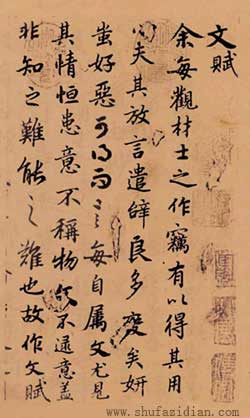 文賦
余每觀材士之作竊有以得其用
心夫其放言遣辭良多變矣妍
蚩好惡可得而言每自屬文尤見
其情恒患意不稱物文不逮意蓋
非知之難能之難也故作文賦
www.shufazidian.com